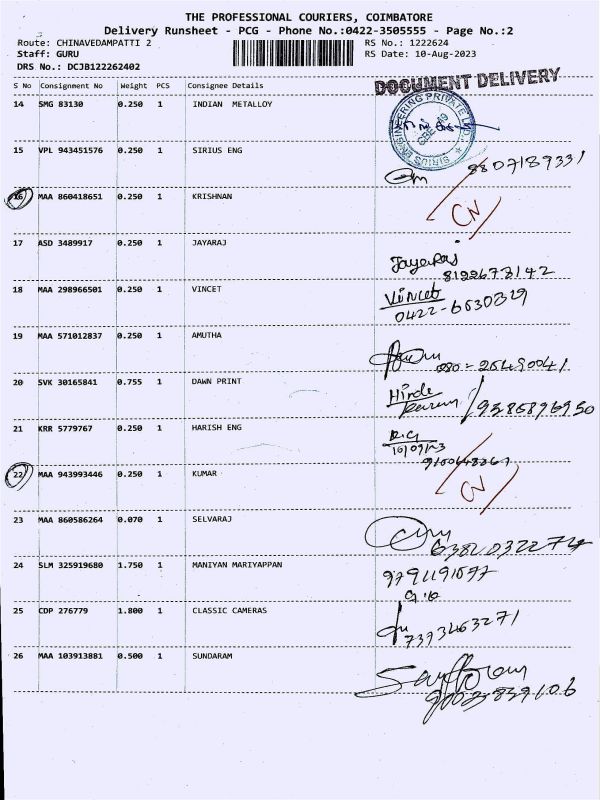 THE PROFESSIONAL COURIERS, COIMBATORE
Delivery Runsheet - PCG - Phone No.:0422-3505555 - Page No.:2
Route: CHINAVEDAMPATTI 2
RS No.: 1222624
Staff: GURU
RS Date: 10-Aug-2023
DRS No.: DCJB122262402
DOCUMENT DELIVERY
S No Consignment No Weight PCS Consignee Details
14 SMG 83130 0.250 1 INDIAN METALLOY
SIRIUS ENGINEERING PRIVATE LTD.
15 VPL 943451576 0.250 1 SIRIUS ENG
9807189331
16 MAA 860418651 0.250 1 KRISHNAN
CN
17 ASD 3489917 0.250 1 JAYARAJ
Jayaraj
8122673142
18 MAA 298966501 0.250 1 VINCET
Vincet
0422-6630329
19 MAA 571012837 0.250 1 AMUTHA
080-25490041
20 SVK 30165841 0.755 1 DAWN PRINT
9385896950
21 KRR 5779767 0.250 1 HARISH ENG
22 MAA 943993446 0.250 1 KUMAR
CN
23 MAA 860586264 0.070 1 SELVARAJ
24 SLM 325919680 1.750 1 MANIYAN MARIYAPPAN
25 CDP 276779 1.800 1 CLASSIC CAMERAS
7373463271
26 MAA 103913881 0.500 1 SUNDARAM